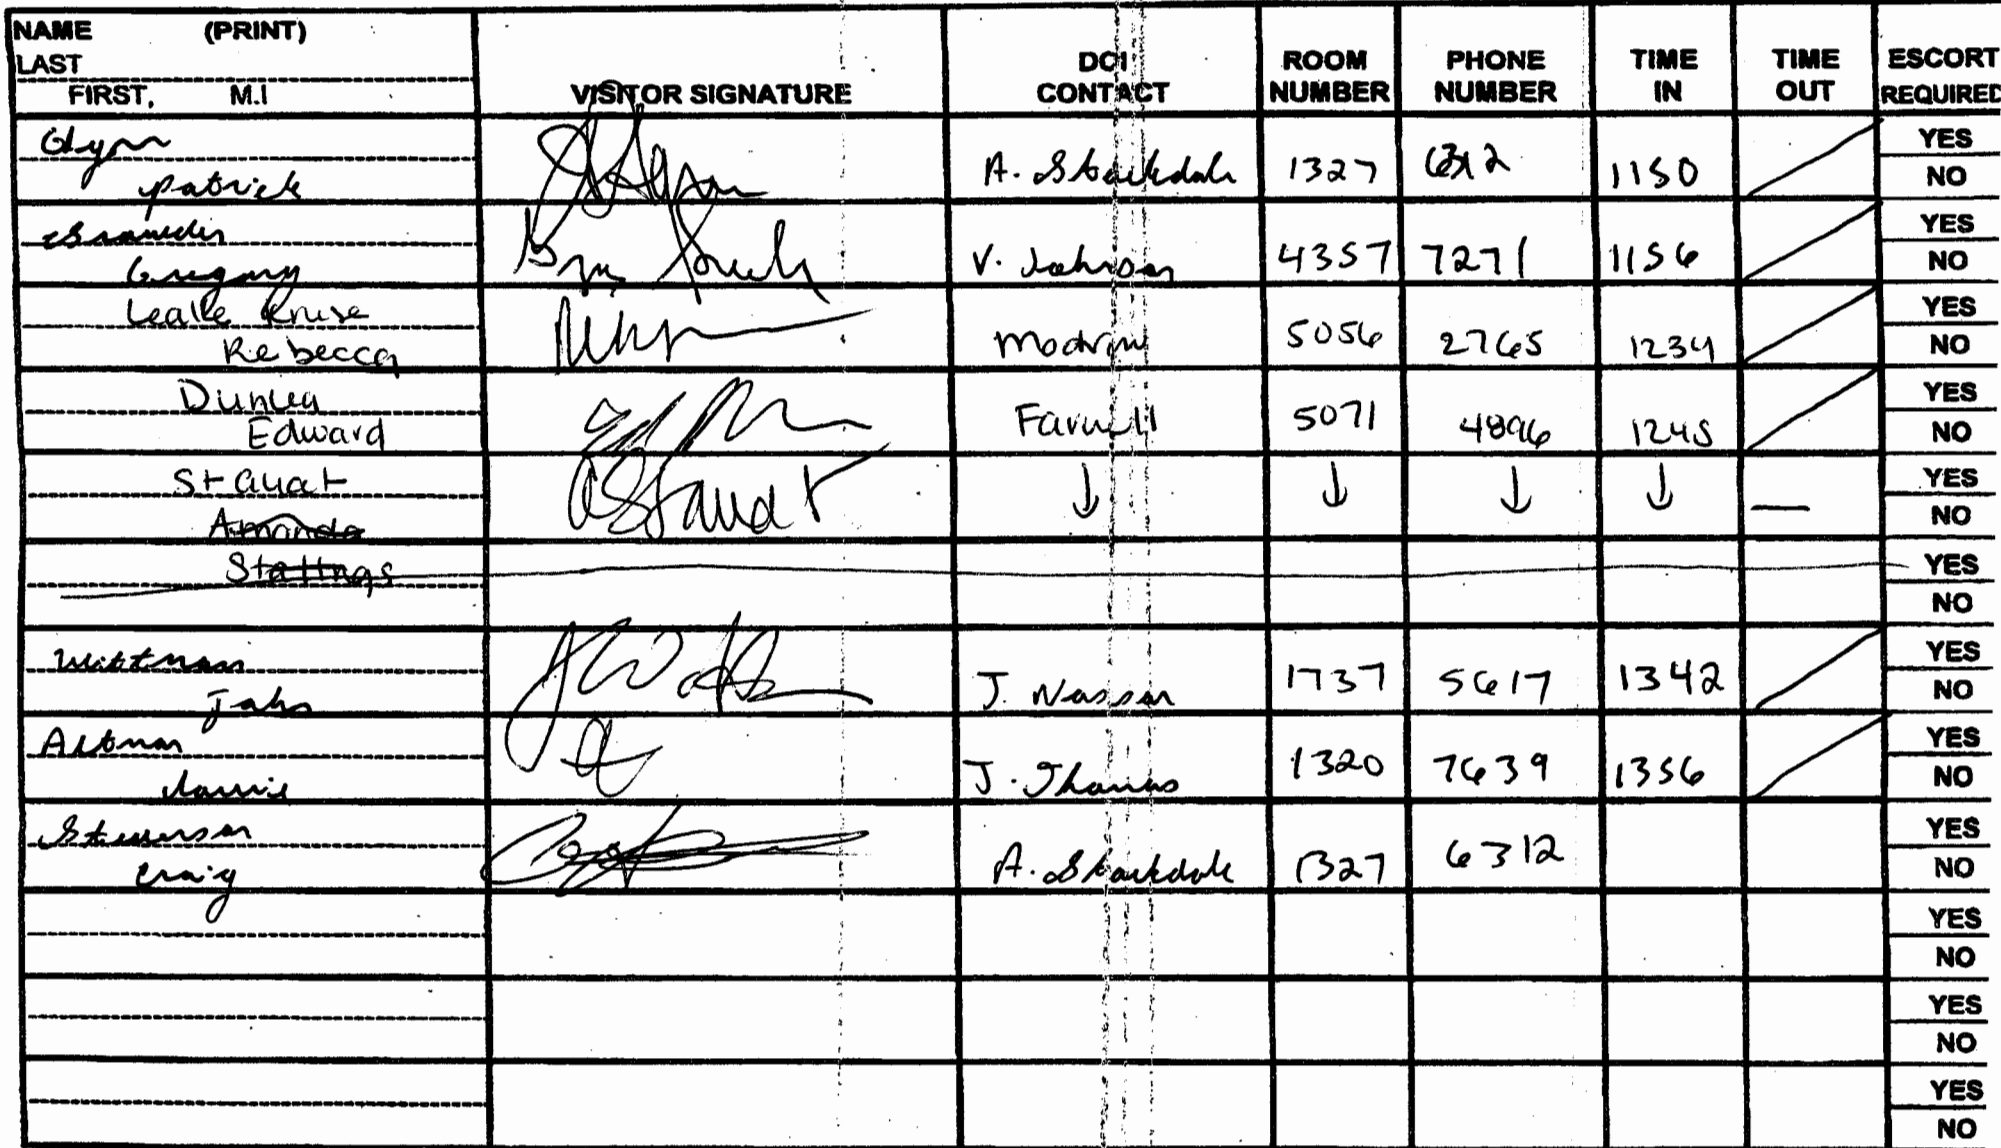 NAME (PRINT)
LAST
FIRST, M.I
VISITOR SIGNATURE
DOI CONTACT
ROOM NUMBER
PHONE NUMBER
TIME IN
TIME OUT
ESCORT REQUIRED
Glynn
Patrick
A. Stockdale 1327 6312 1150
YES
NO
Gregory
V. Johnson 4357 7271 1156
YES
NO
Rebecca
5056 2765 1234
YES
NO
Edward
5071 4896 1245
YES
NO
↓ ↓ ↓ ↓ —
YES
NO
Amanda
Stallings
YES
NO
Wittman
John
J. Nassar 1737 5617 1342
YES
NO
Altman
J. Thomas 1320 7639 1356
YES
NO
Stevenson
Craig
A. Stockdale 1327 6312
YES
NO
YES
NO
YES
NO
YES
NO